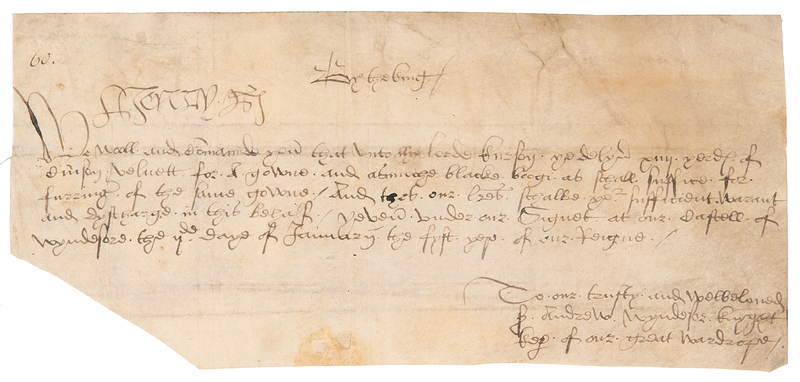 60.
By the king
Henry R
We Woll and cōmande you that unto the lorde ye delyv͛ yerdℓ of
velvett for A gowne and asmuche blacke bogi as shall suffice for
furring of the same gowne / And thes our lr̄es shalbe yor sufficient warant
and dyscharge in this behalf / Yeven under our Signet at our Castell of
Wyndesore the ijde daye of January the fyft yere of our Reigne /
To our trusty and welbeloued
Sr Andrew Wyndesor knyght
kep͛ of our great wardrope /